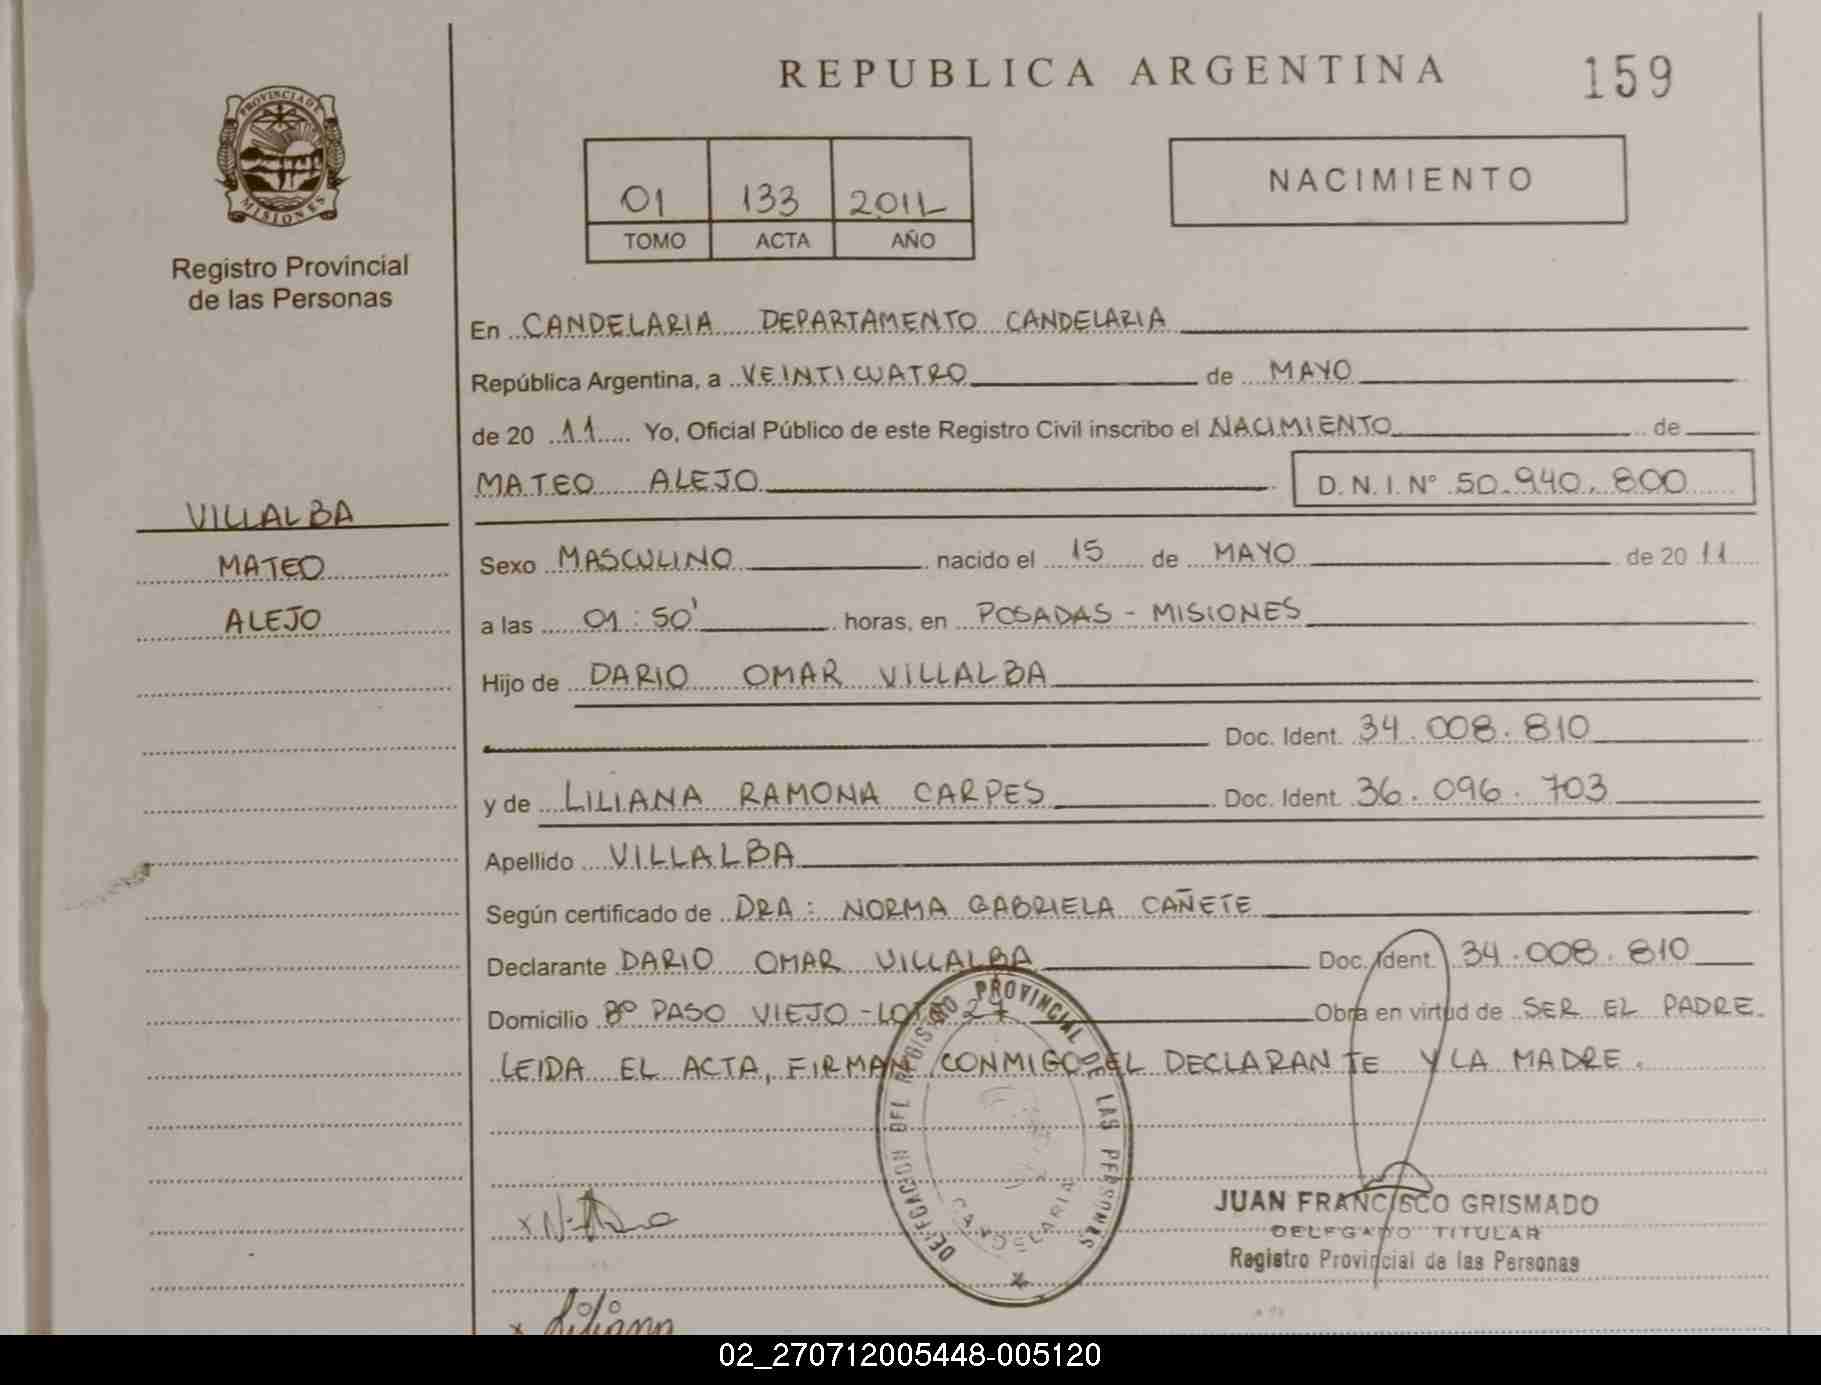 REPUBLICA ARGENTINA
159
PROVINCIA DE MISIONES
Registro Provincial
de las Personas
01 133 2011
TOMO ACTA AÑO
NACIMIENTO
En CANDELARIA DEPARTAMENTO CANDELARIA
República Argentina, a VEINTICUATRO de MAYO
de 20 11 Yo, Oficial Público de este Registro Civil inscribo el NACIMIENTO de
MATEO ALEJO D. N. I. N° 50.940.800
VILLALBA
MATEO
ALEJO
Sexo MASCULINO nacido el 15 de MAYO de 20 11
a las 01:50' horas, en POSADAS - MISIONES
Hijo de DARIO OMAR VILLALBA
Doc. Ident. 34.008.810
y de LILIANA RAMONA CARPES Doc. Ident. 36.096.703
Apellido VILLALBA
Según certificado de DRA: NORMA GABRIELA CAÑETE
Declarante DARIO OMAR VILLALBA Doc. Ident. 34.008.810
Domicilio Bº PASO VIEJO - LOTE Obra en virtud de SER EL PADRE.
LEIDA EL ACTA, FIRMAN CONMIGO EL DECLARANTE Y LA MADRE.
DELEGACION DEL REGISTRO PROVINCIAL DE LAS PERSONAS
CANDELARIA
JUAN FRANCISCO GRISMADO
DELEGADO TITULAR
Registro Provincial de las Personas
x Liliana
02_270712005448-005120